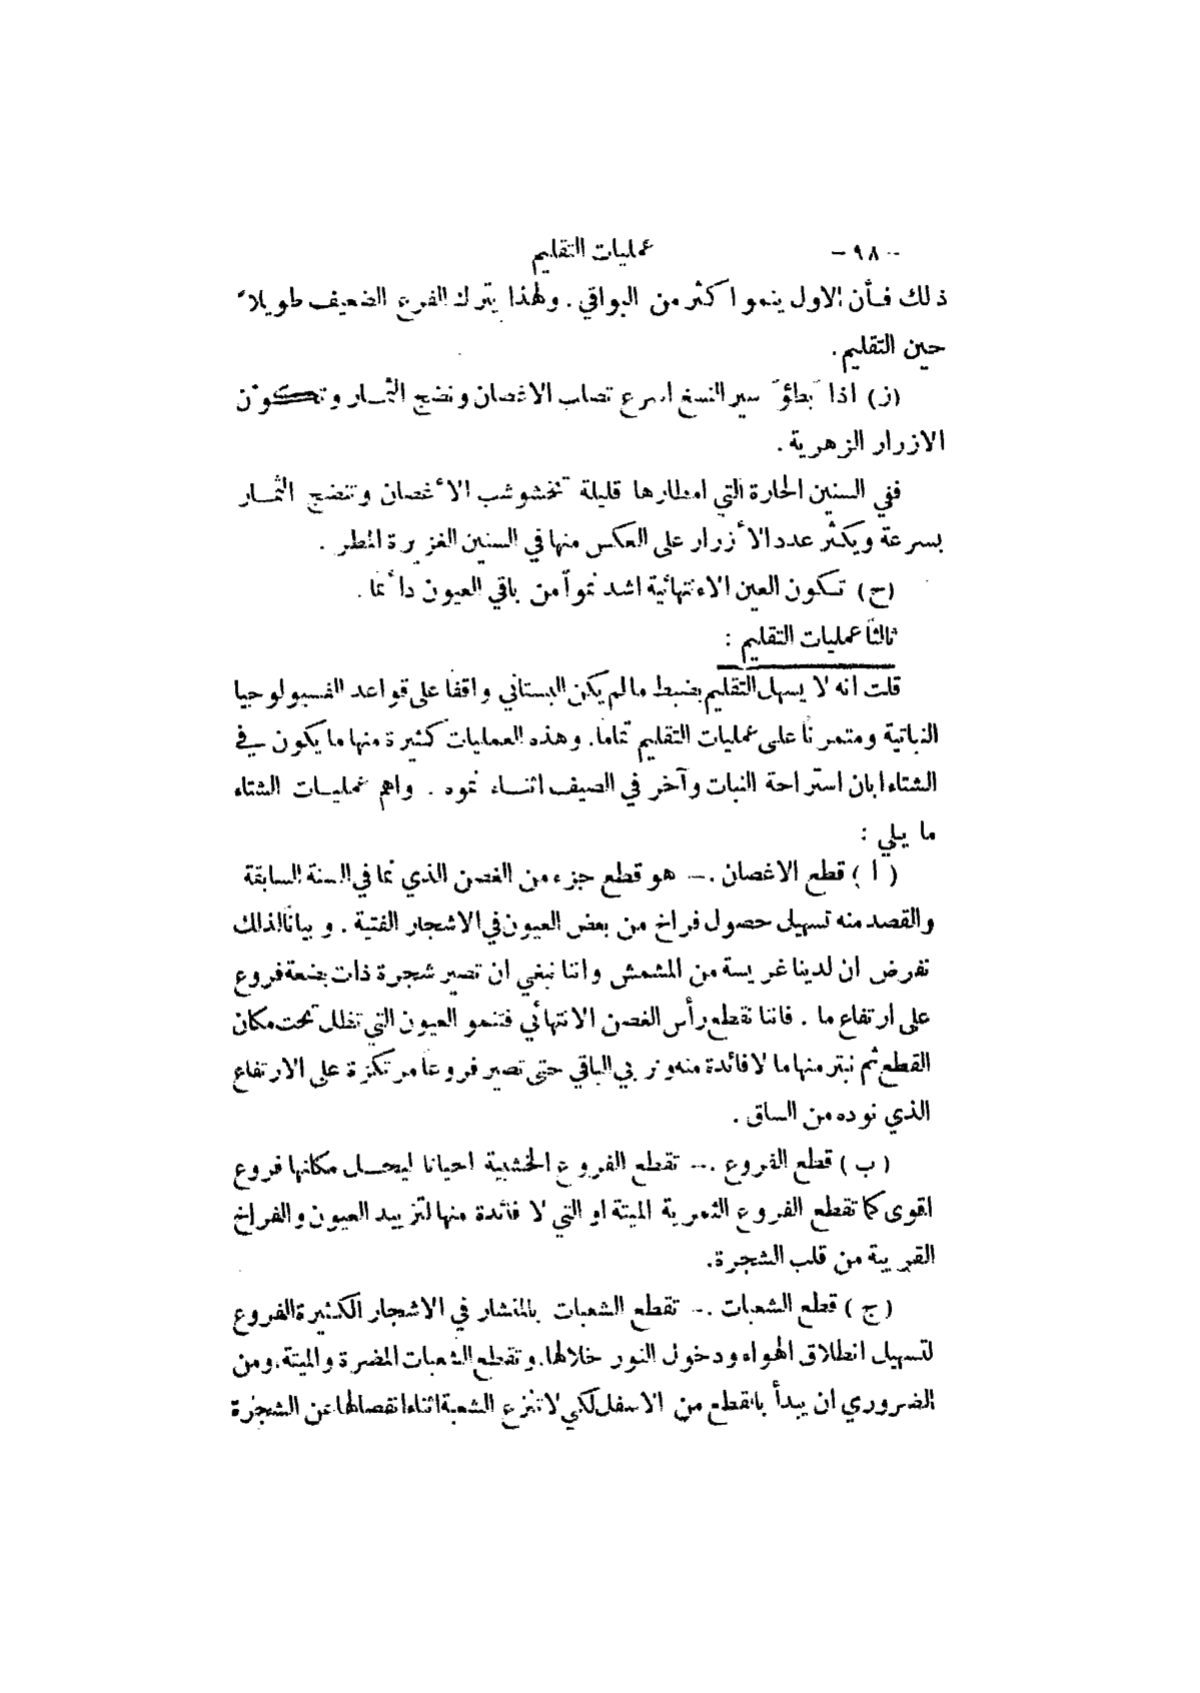 - ٩٨ - عمليات التقليم
ذلك فأن الاول ينمو اكثر من البواقي . ولهذا يترك الفرع الضعيف طويلاً
حين التقليم .
(ز) اذا بطؤ سير النسغ اسرع تصلب الاغصان ونضج الثمار وتكوّن
الازرار الزهرية .
ففي السنين الحارة التي امطارها قليلة تخشوشب الأغصان وتنضج الثمار
بسرعة ويكثر عدد الأزرار على العكس منها في السنين الغزيرة المطر .
(ح) تكون العين الانتهائية اشد نمواً من باقي العيون دائمًا .
ثالثًا عمليات التقليم :
قلت انه لا يسهل التقليم بضبط ما لم يكن البستاني واقفًا على قواعد الفسيولوجيا
النباتية ومتمرنًا على عمليات التقليم تمامًا. وهذه العمليات كثيرة منها ما يكون في
الشتاء ابان استراحة النبات وآخر في الصيف اثناء نموه . واهم عمليات الشتاء
ما يلي :
( ا ) قطع الاغصان .— هو قطع جزء من الغصن الذي نما في السنة السابقة
والقصد منه تسهيل حصول فراخ من بعض العيون في الاشجار الفتية . وبيانًا لذلك
نفرض ان لدينا غريسة من المشمش واننا نبغي ان تصير شجرة ذات بضعة فروع
على ارتفاع ما . فاننا نقطع رأس الغصن الانتهائي فتنمو العيون التي تظل تحت مكان
القطع ثم نبتر منها ما لا فائدة منه ونربي الباقي حتى تصير فروعًا مرتكزة على الارتفاع
الذي نوده من الساق .
( ب ) قطع الفروع .— تقطع الفروع الخشبية احيانا ليحل مكانها فروع
اقوى كما تقطع الفروع الثمرية الميتة او التي لا فائدة منها لتزييد العيون والفراخ
القريبة من قلب الشجرة.
( ج ) قطع الشعبات .— تقطع الشعبات بالمنشار في الاشجار الكثيرة الفروع
لتسهيل انطلاق الهواء ودخول النور خلالها. وتقطع الشعبات المضرة والميتة، ومن
الضروري ان يبدأ بالقطع من الاسفل لكي لا تنزع الشعبة اثناء انفصالها عن الشجرة